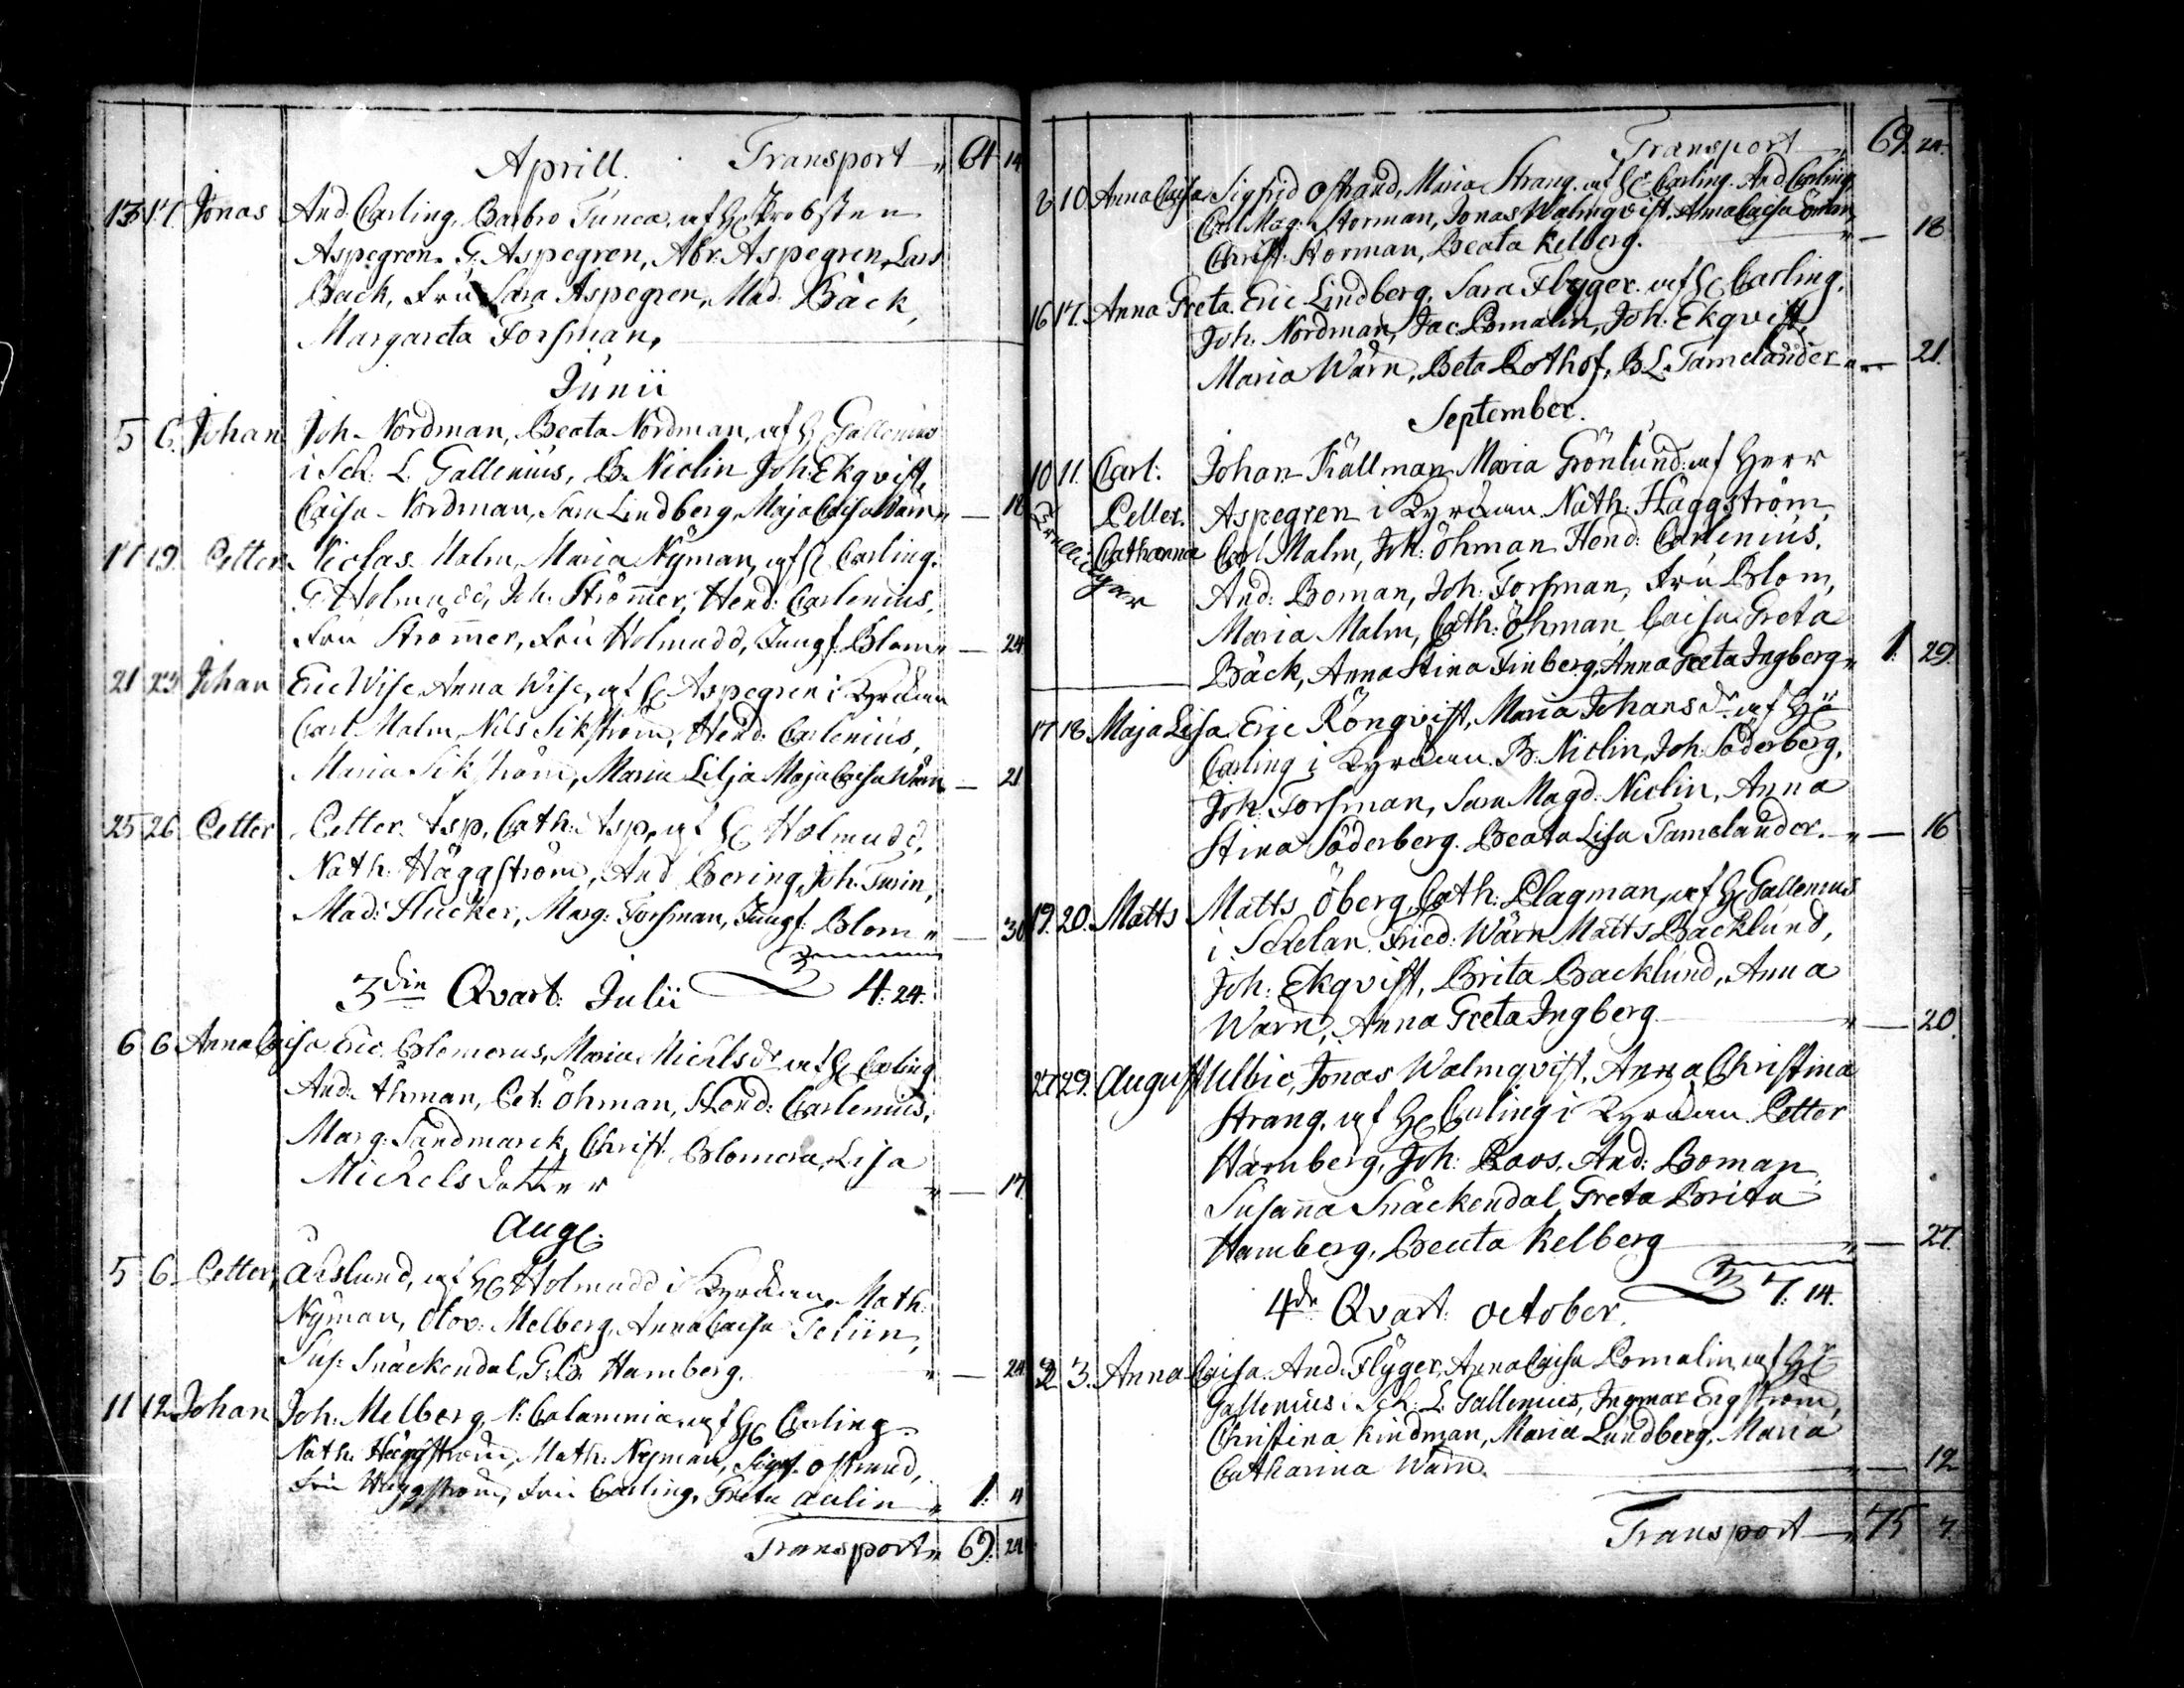 Aprill. Transport " 64 14
13 17. Jonas And. Carling, Barbro Tunca, af H Probsten
Aspegren. G. Aspegren, Abr. Aspegren, Lars
Back, Fru Sara Aspegren, Mad: Bäck,
Margareta Forsman,
Junii
5 6. Johan Joh. Nordman, Beata Nordman, af H Gallenius
i Sch: L. Gallenius, B. Niclin Joh: Ekqvist,
Caisa Nordman, Sara Lindberg, Maja Caisa Wärn " — 18
17 19. Petter Niclas Malm, Maria Nyman, af H Carling.
G. Holmudd, Joh. Strömmer, Hend: Carlenius,
Fru Strömmer, Fru Holmudd, Jungf. Blom " — 24.
21 23 Johan Eric Wise Anna Wise, af H Aspegren i Kyrckan
Carl Malm, Nils Sikström, Hend: Carlenius,
Maria Sikström, Maria Lilja Maja Caisa Wärn — 21
25 26. Petter Petter Asp, Cath: Asp, af H Holmudd,
Nath: Häggström, And Bering, Joh. Turin,
Mad: Hucker, Marg: Forsman, Jungf: Blom " — 30
3die Qvart: Julii 4: 24.
6 6 Anna Caisa Eric Blomerus, Maria Michelsdr af H Carling
And: Åhman, Pet: Öhman, Hend: Carlenius,
Marg: Sandmarck, Christ: Blomera, Lisa
Michelsdotter " — 17.
Aug:
5 6. Petter, Åkslund, af H Holmudd i Kyrckan, Math:
Nyman, Olov: Melberg, Anna Caisa Telin,
Sus: Snäckendal, G: B: Hamberg. " — 24.
11 12. Johan Joh: Melberg, N: Calamnia af H Carling
Nath: Häggström, Math: Nyman, Sigf. Ostrand,
Fru Häggström, Fru Carling, Greta Aulin " 1. "
Transport " 69. 24
Transport 69. 24.
8 10 Anna Caisa Sigfrid Ostrand, Maria Strang. af Hr Carling. And Carling,
Carl Mag: Storman, Jonas Walmqvist, Anna Caisa Öman,
Christ: Storman, Beata Kelberg. " — 18
16 17. Anna Greta. Eric Lindberg, Sara Flyger. af H Carling.
Joh. Nordman, Jac Pomalin, Joh: Ekqvist,
Maria Wärn, Beta Rothof, B L. Tamelander " — 21.
September.
10 11. Carl: Johan Källman Maria Grönlund: af Herr
Petter. Aspegren i Kyrckan Nath: Häggström
Catharina Carl Malm, Joh: Öhman Hend: Carlenius,
Trillingar
And: Boman, Joh: Forsman, Fru Blom,
Maria Malm, Cath: Öhman, Caisa Greta
Bäck, Anna Stina Finberg, Anna Greta Ingberg " 1. 29.
17 18. Maja Lisa. Eric Rönqvist, Maria Johansdr af Hr
Carling i Kyrckan. B. Niclin, Joh: Söderberg,
Joh: Forsman, Sara Magd: Niclin, Anna
Stina Söderberg. Beata Lisa Tamelander. " — 16
19. 20. Matts Matts Öberg, Cath: Plagman, af H Gallenius
i Schelan. Fried: Wärn Matts Backlund,
Joh: Ekqvist, Brita Backlund, Anna
Warn, Anna Greta Ingberg " — 20.
27 29. August Ulbic, Jonas Walmqvist, Anna Christina
Strang. af H Carling i Kyrckan. Petter
Hamberg, Joh: Roos, And: Boman,
Susanna Snäckendal, Greta Brita
Hamberg, Beata Kelberg " — 27.
4de Qvart: October. 7: 14.
2 3. Anna Caisa. And: Flyger, Anna Caisa Pomalin af Hr
Gallenius i Sch: L: Gallenius, Ingmar Engström,
Christina Kindman, Maria Lundberg, Maria
Catharina Wärn. " — 12
Transport " 75 7.